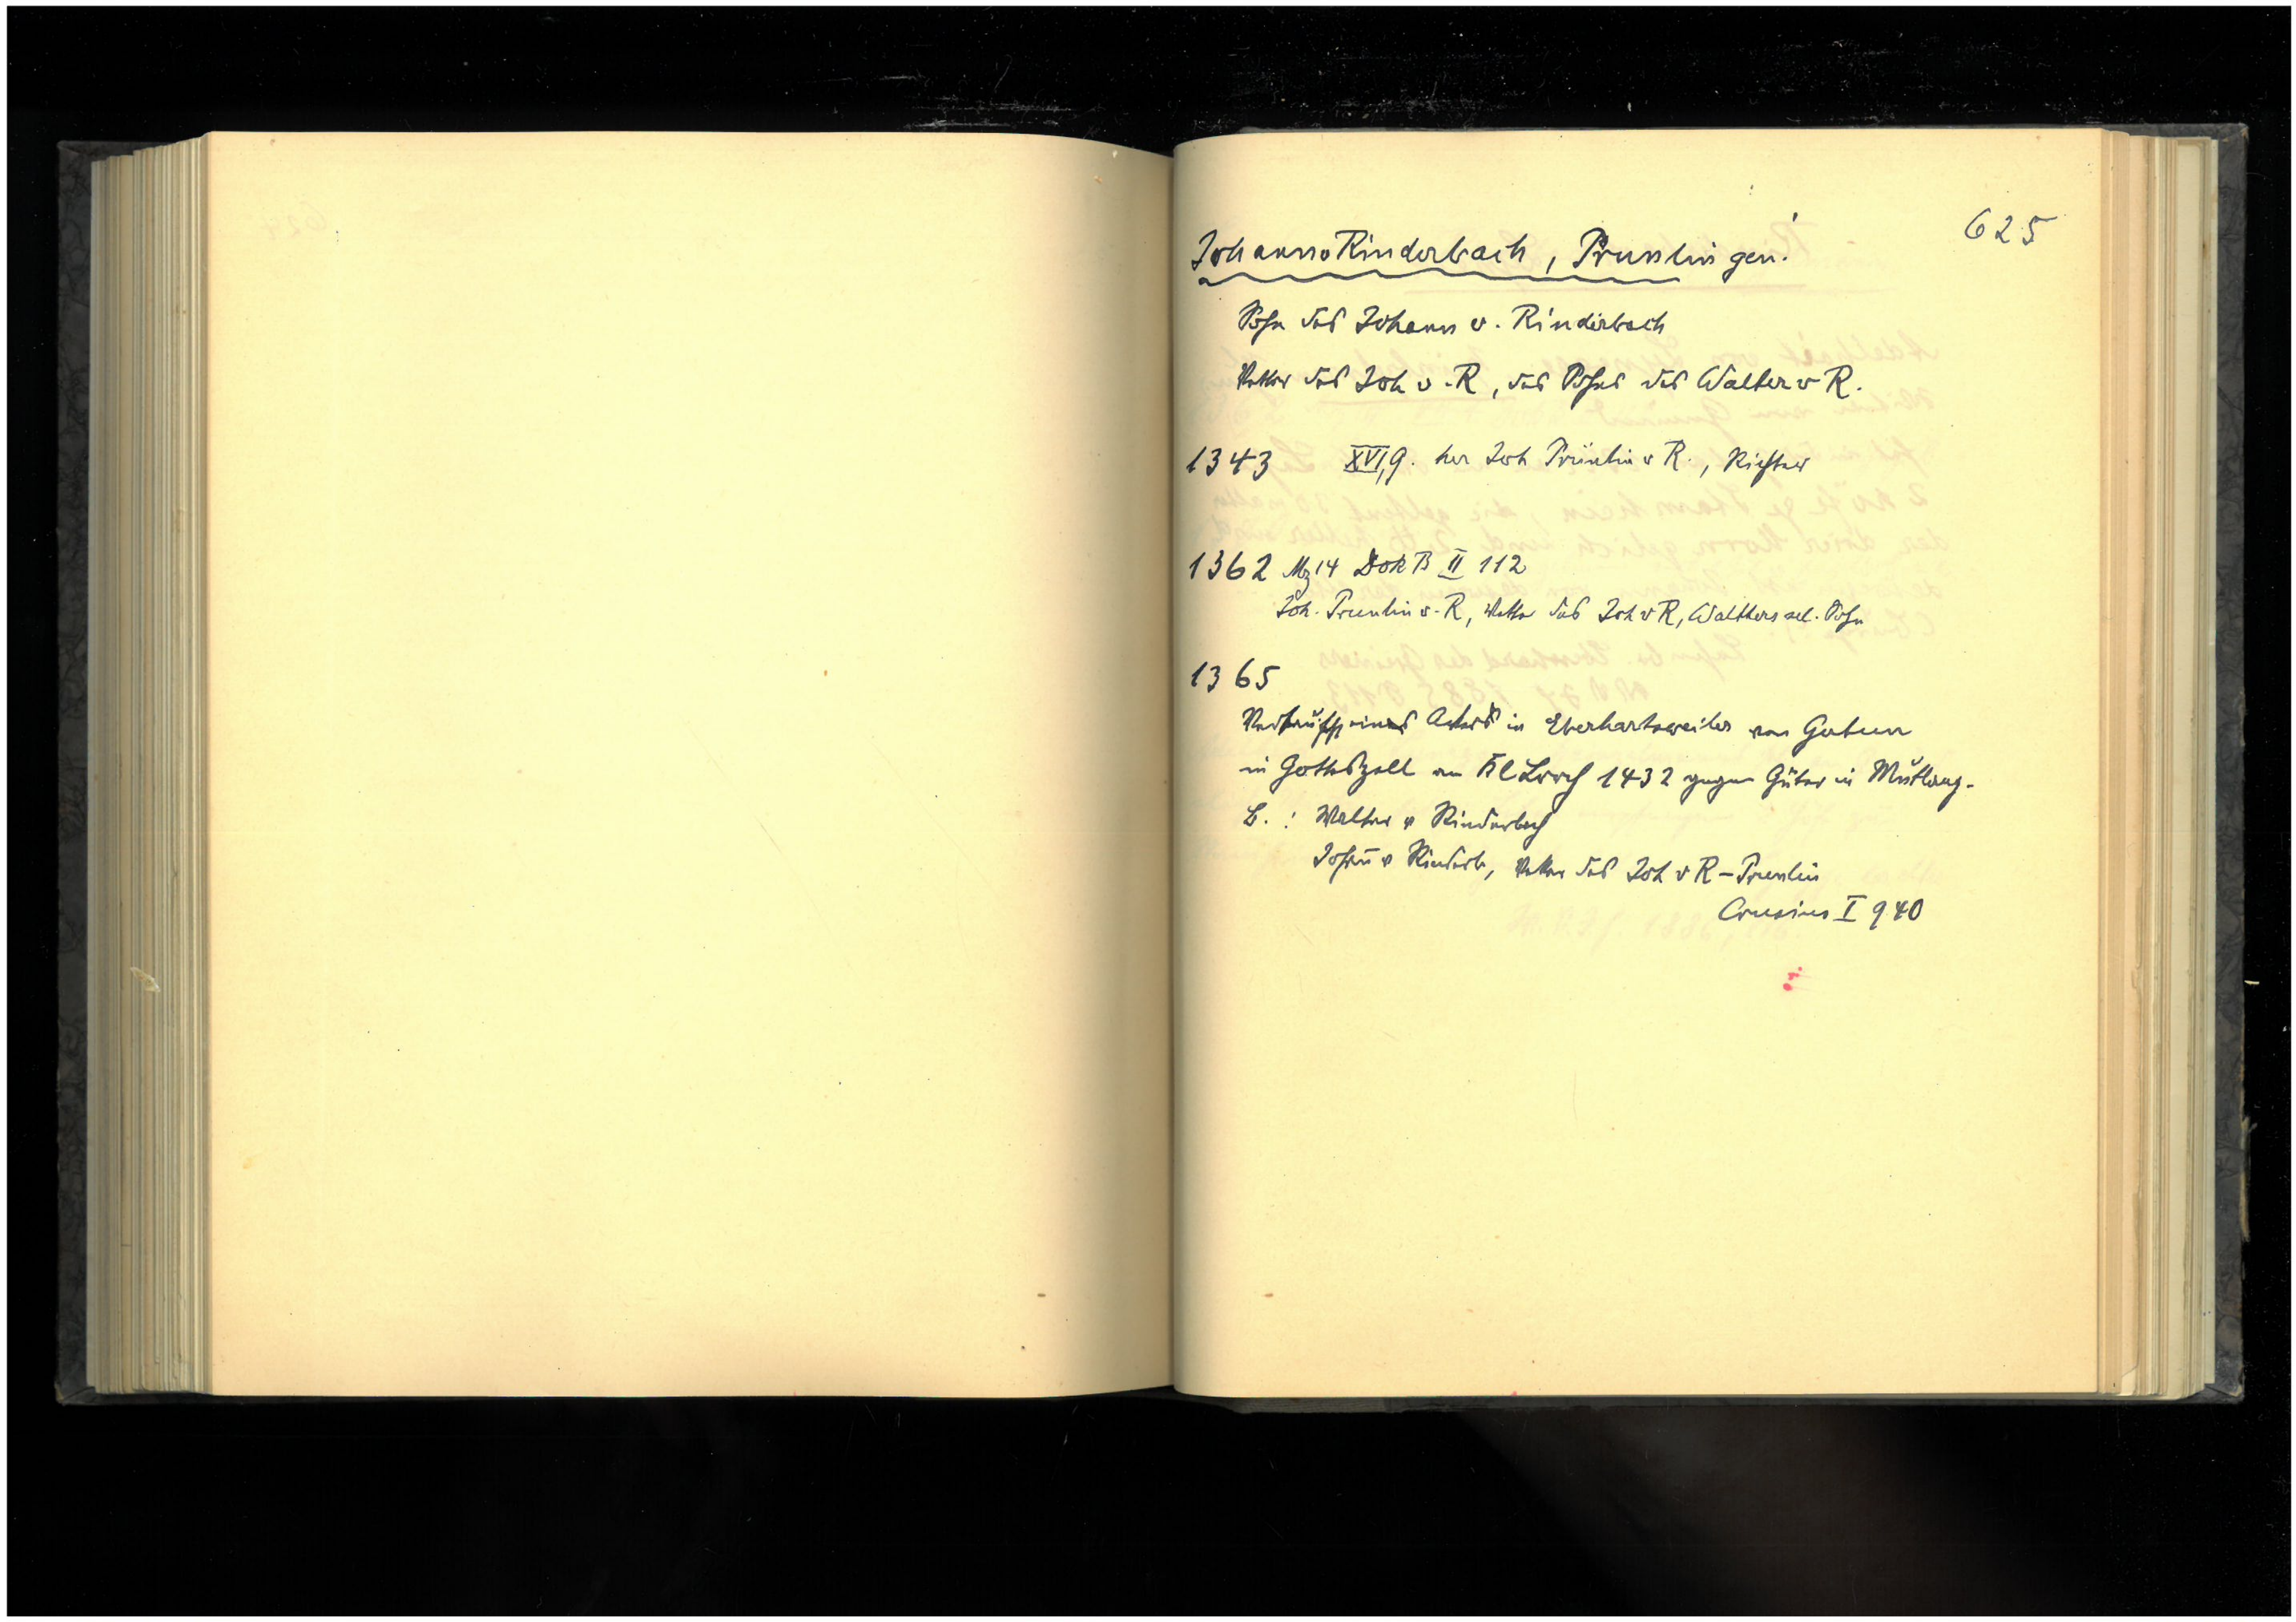 625
Johann v Rinderbach, Prunlin gen.
Sohn des Johann v. Rinderbach
Vetter des Joh v. R, des Sohnes des Walter v R.
1343 XVI,9. her Joh Prünlin v R., Richter
1362 Mz 14 Dok B II 112
Joh. Prunlin v. R, Vetter des Joh v R, Walthers sel. Sohn
1365
Verkauf eines Ackers in Eberhartsweiler von
in Gotteszell an Kl Lorch 1432 gegen Güter in Mutlang.
B.: Walter v Rinderbach
Johañ v Rinderb, Vetter des Joh v R - Prunlin
Crusius I 940